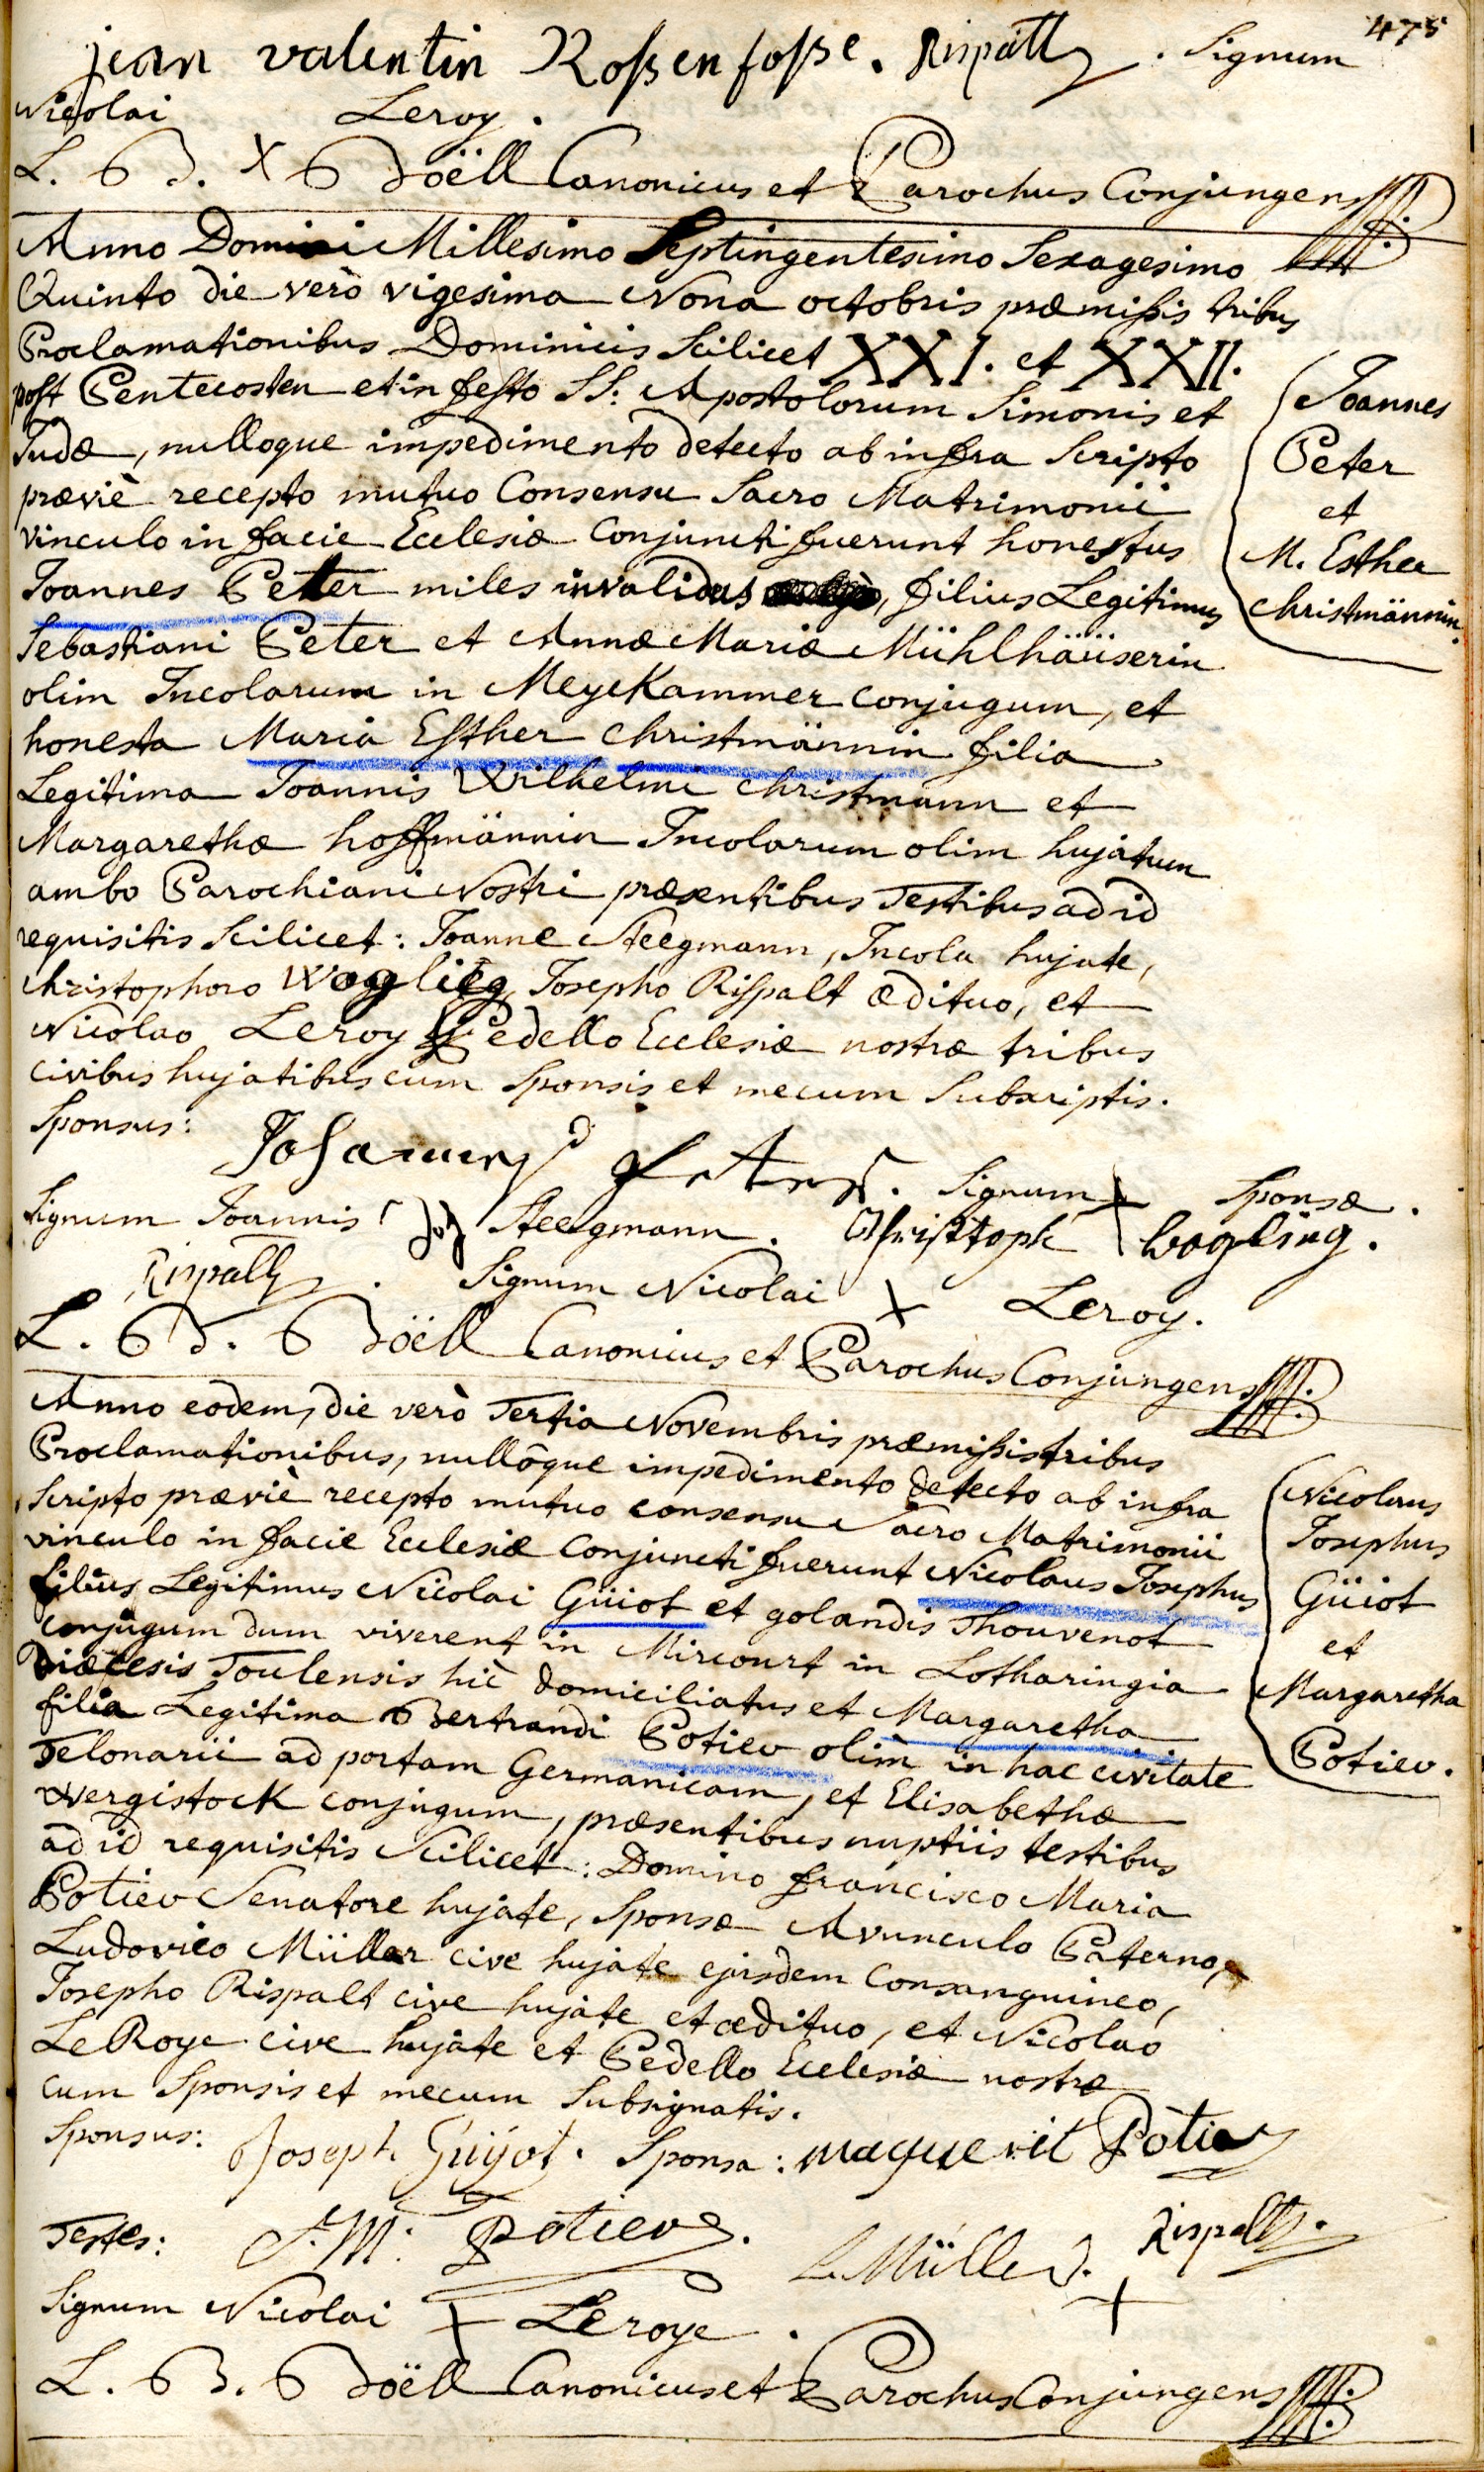 475
jean valentin Roßenfoße. Rispalt. Signum
Nicolai Leroy.
L. B D. X B Doëll Canonicus et Parochus Conjungens
Anno Domini Millesimo Septingentesimo Sexagesimo
Quinto die verò vigesima Nona octobris præmißis tribus
Proclamationibus Dominicis Scilicet XXI. et XXII.
post Pentecosten et in festo SS: Apostolorum Simonis et
Judæ, nulloque impedimento detecto ab infra Scripto
præviè recepto mutuo Consensu Sacro Matrimonii
vinculo in facie Ecclesiæ Conjuncti fuerunt honestus
Joannes Peter miles invalidus, filius Legitimus
Sebastiani Peter et Annæ Mariæ Mühlhäüserin
olim Incolarum in MeyeKammer conjugum, et
honesta Maria Esther christmännin filia
Legitima Joannis Wilhelmi christmann et
Margarethæ hoffmännin Incolarum olim hujatum
ambo Parochiani Nostri præsentibus Testibus ad id
requisitis Scilicet: Joanne Steegmann, Incola hujate,
christophoro Wogling, Josepho Rispalt ædituo, et
Nicolao Leroy Pedello Ecclesiæ nostræ tribus
civibus hujatibus cum Sponsis et mecum Subscriptis.
Joannes
Peter
et
M. Esther
christmännin.
Sponsus: Johannes Peter. Signum + Sponsæ.
Signum Joannis Steegmann. Christoph Wogling.
Rispalt. Signum Nicolai X Leroy.
L. B D. B Doëll Canonicus et Parochus Conjungens
Anno eodem, die verò Tertia Novembris præmißis tribus
Proclamationibus, nullôque impedimento detecto ab infra
Scripto præviè recepto mutuo consensu Sacro Matrimonii
vinculo in facie Ecclesiæ Conjuncti fuerunt Nicolaus Josephus
filius Legitimus Nicolai Güiot et golandis Thouvenot
conjugum dum viverent in Mircourt in Lotharingia
Diæcesis Toulensis hic domiciliatus et Margaretha
filia Legitima Bertrandi Potiev olim in hac civitate
Telonarii ad portam Germanicam, et Elisabethæ
WergistocK conjugum, præsentibus nuptiis testibus
ad id requisitis Scilicet: Domino francisco Maria
Potiev Senatore hujate, Sponsæ Avunculo Paterno,
Ludovico Müller cive hujate ejusdem Consanguineo,
Josepho Rispalt cive hujate et ædituo, et Nicolao
LeRoye cive hujate et Pedello Ecclesiæ nostræ
cum Sponsis et mecum Subsignatis.
Nicolaus
Josephus
Güiot
et
Margaretha
Potiev.
Sponsus: Joseph Güÿot. Sponsa: maguerit Pôtiev
Testes: F. M. Potiev. L. Müller. Rispalt.
Signum Nicolai + Leroye. +
L. B D. B Doëll Canonicus et Parochus Conjungens